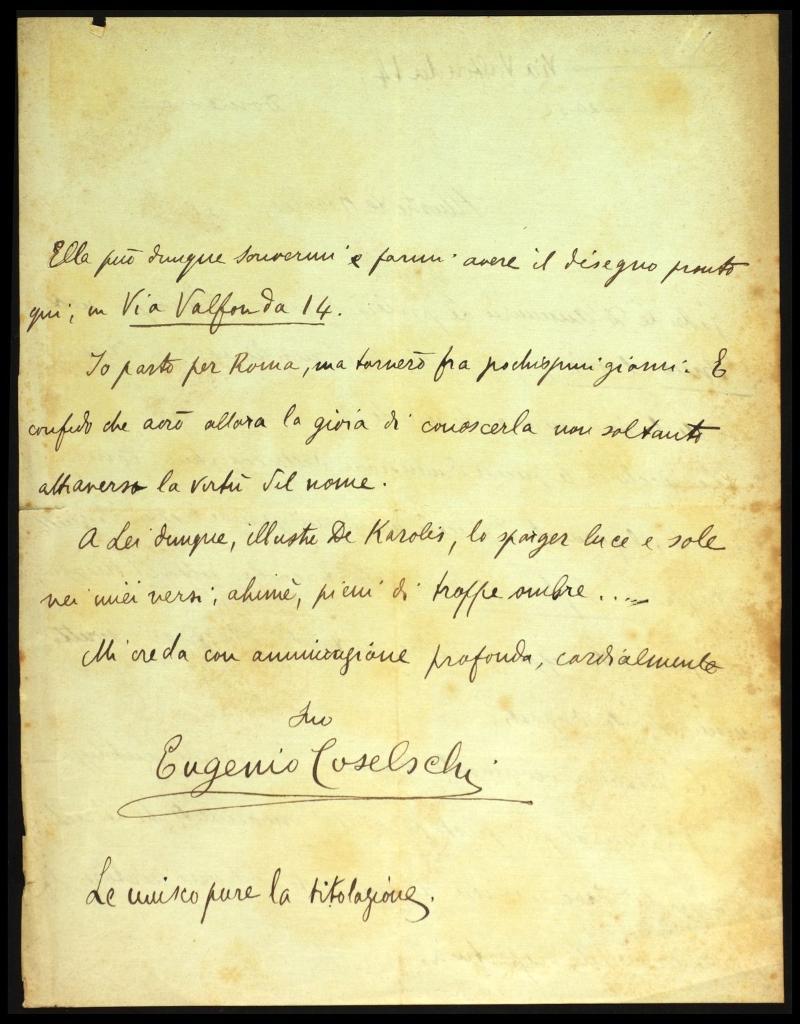 Ella può dunque scrivermi e farmi avere il disegno pronto
qui, in Via Valfonda 14.
Io parto per Roma, ma tornerò fra pochissimi giorni. E
confido che avrò allora la gioia di conoscerla non soltanto
attraverso la virtù del nome.
A Lei dunque, illustre De Karolis, lo sparger luce e sole
nei miei versi, ahimè, pieni di troppe ombre....
Mi creda con ammirazione profonda, cordialmente
Suo
Eugenio Coselschi
Le unisco pure la titolazione.